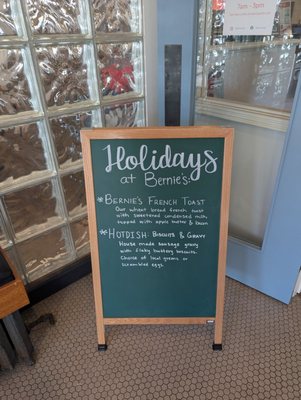 7am - 3pm
Holidays
at Bernie's:
* Bernie's French Toast
Our wheat bread french toast
with sweetened condensed milk,
topped with apple butter & bacon
* Hotdish: Biscuits & Gravy
House made sausage gravy
with flaky buttery biscuits.
Choice of local greens or
scrambled eggs.